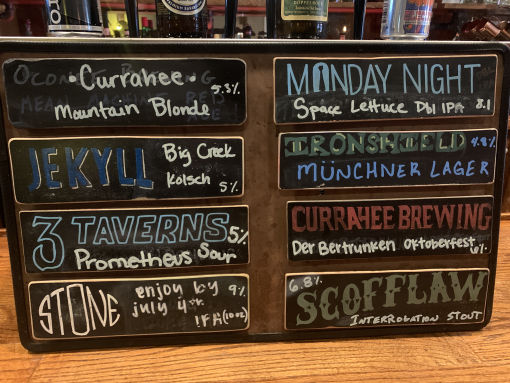 ·Currahee·
Mountain Blonde 5.3%
JEKYLL
Big Creek
Kolsch 5%
3 TAVERNS 5%
Prometheus Sour
STONE
enjoy by 9%
july 4th
IPA (10oz)
MONDAY NIGHT
Space Lettuce Dbl IPA 8.1
IRONSHIELD 4.8%
MÜNCHNER LAGER
CURRAHEE BREWING
Der Bertrunken Oktoberfest 6%
6.8%
SCOFFLAW
INTERROGATION STOUT